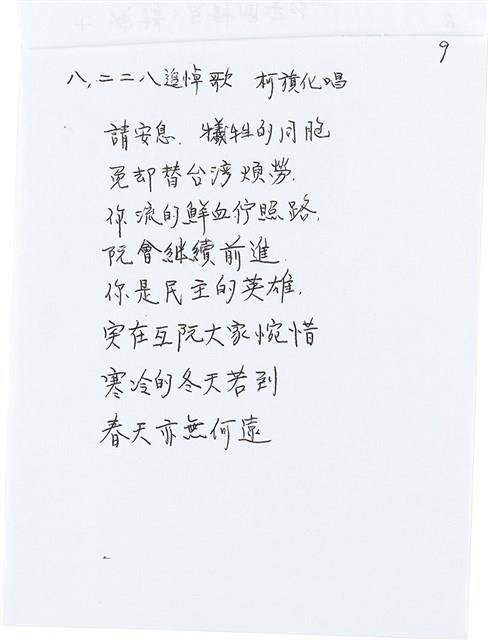 9
八,二二八追悼歌 柯旗化唱
請安息. 犧牲的同胞
免却替台湾煩勞.
你流的鮮血佇照路.
阮會継續前進.
你是民主的英雄.
実在互阮大家惋惜
寒冷的冬天若到
春天亦無何遠